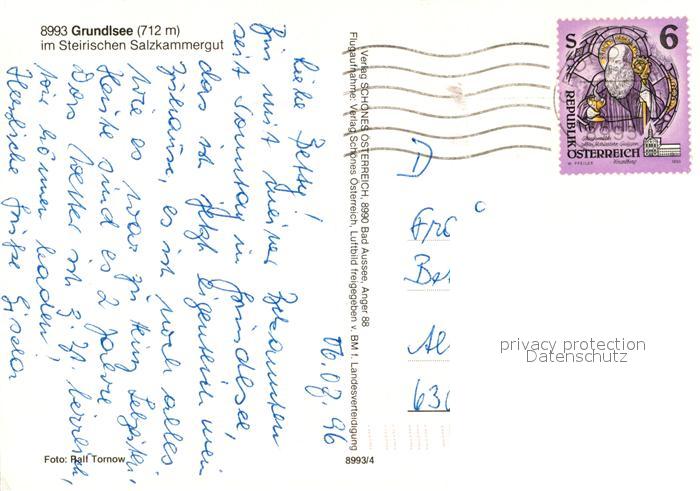 8993 Grundlsee (712 m)
im Steirischen Salzkammergut
06.08.96
Liebe Betty!
Bin mit meiner Bekannten
seit Sonntag in Grundlsee,
das ist jetzt eigentlich mein
Zuhause, es ist noch alles
wie es war zu Lebzeiten,
Heute sind es 2 Jahre.
Das Wetter ist z. Zt. herrlich,
wir können baden!
Herzliche Grüße Gisela
Foto: Ralf Tornow
Verlag SCHÖNES ÖSTERREICH, 8990 Bad Aussee, Anger 88
Flugaufnahme: Verlag Schönes Österreich, Luftbild freigegeben v. BM f. Landesverteidigung
8993/4
S 6
REPUBLIK
ÖSTERREICH
D
Be
Al
63
privacy protection
Datenschutz